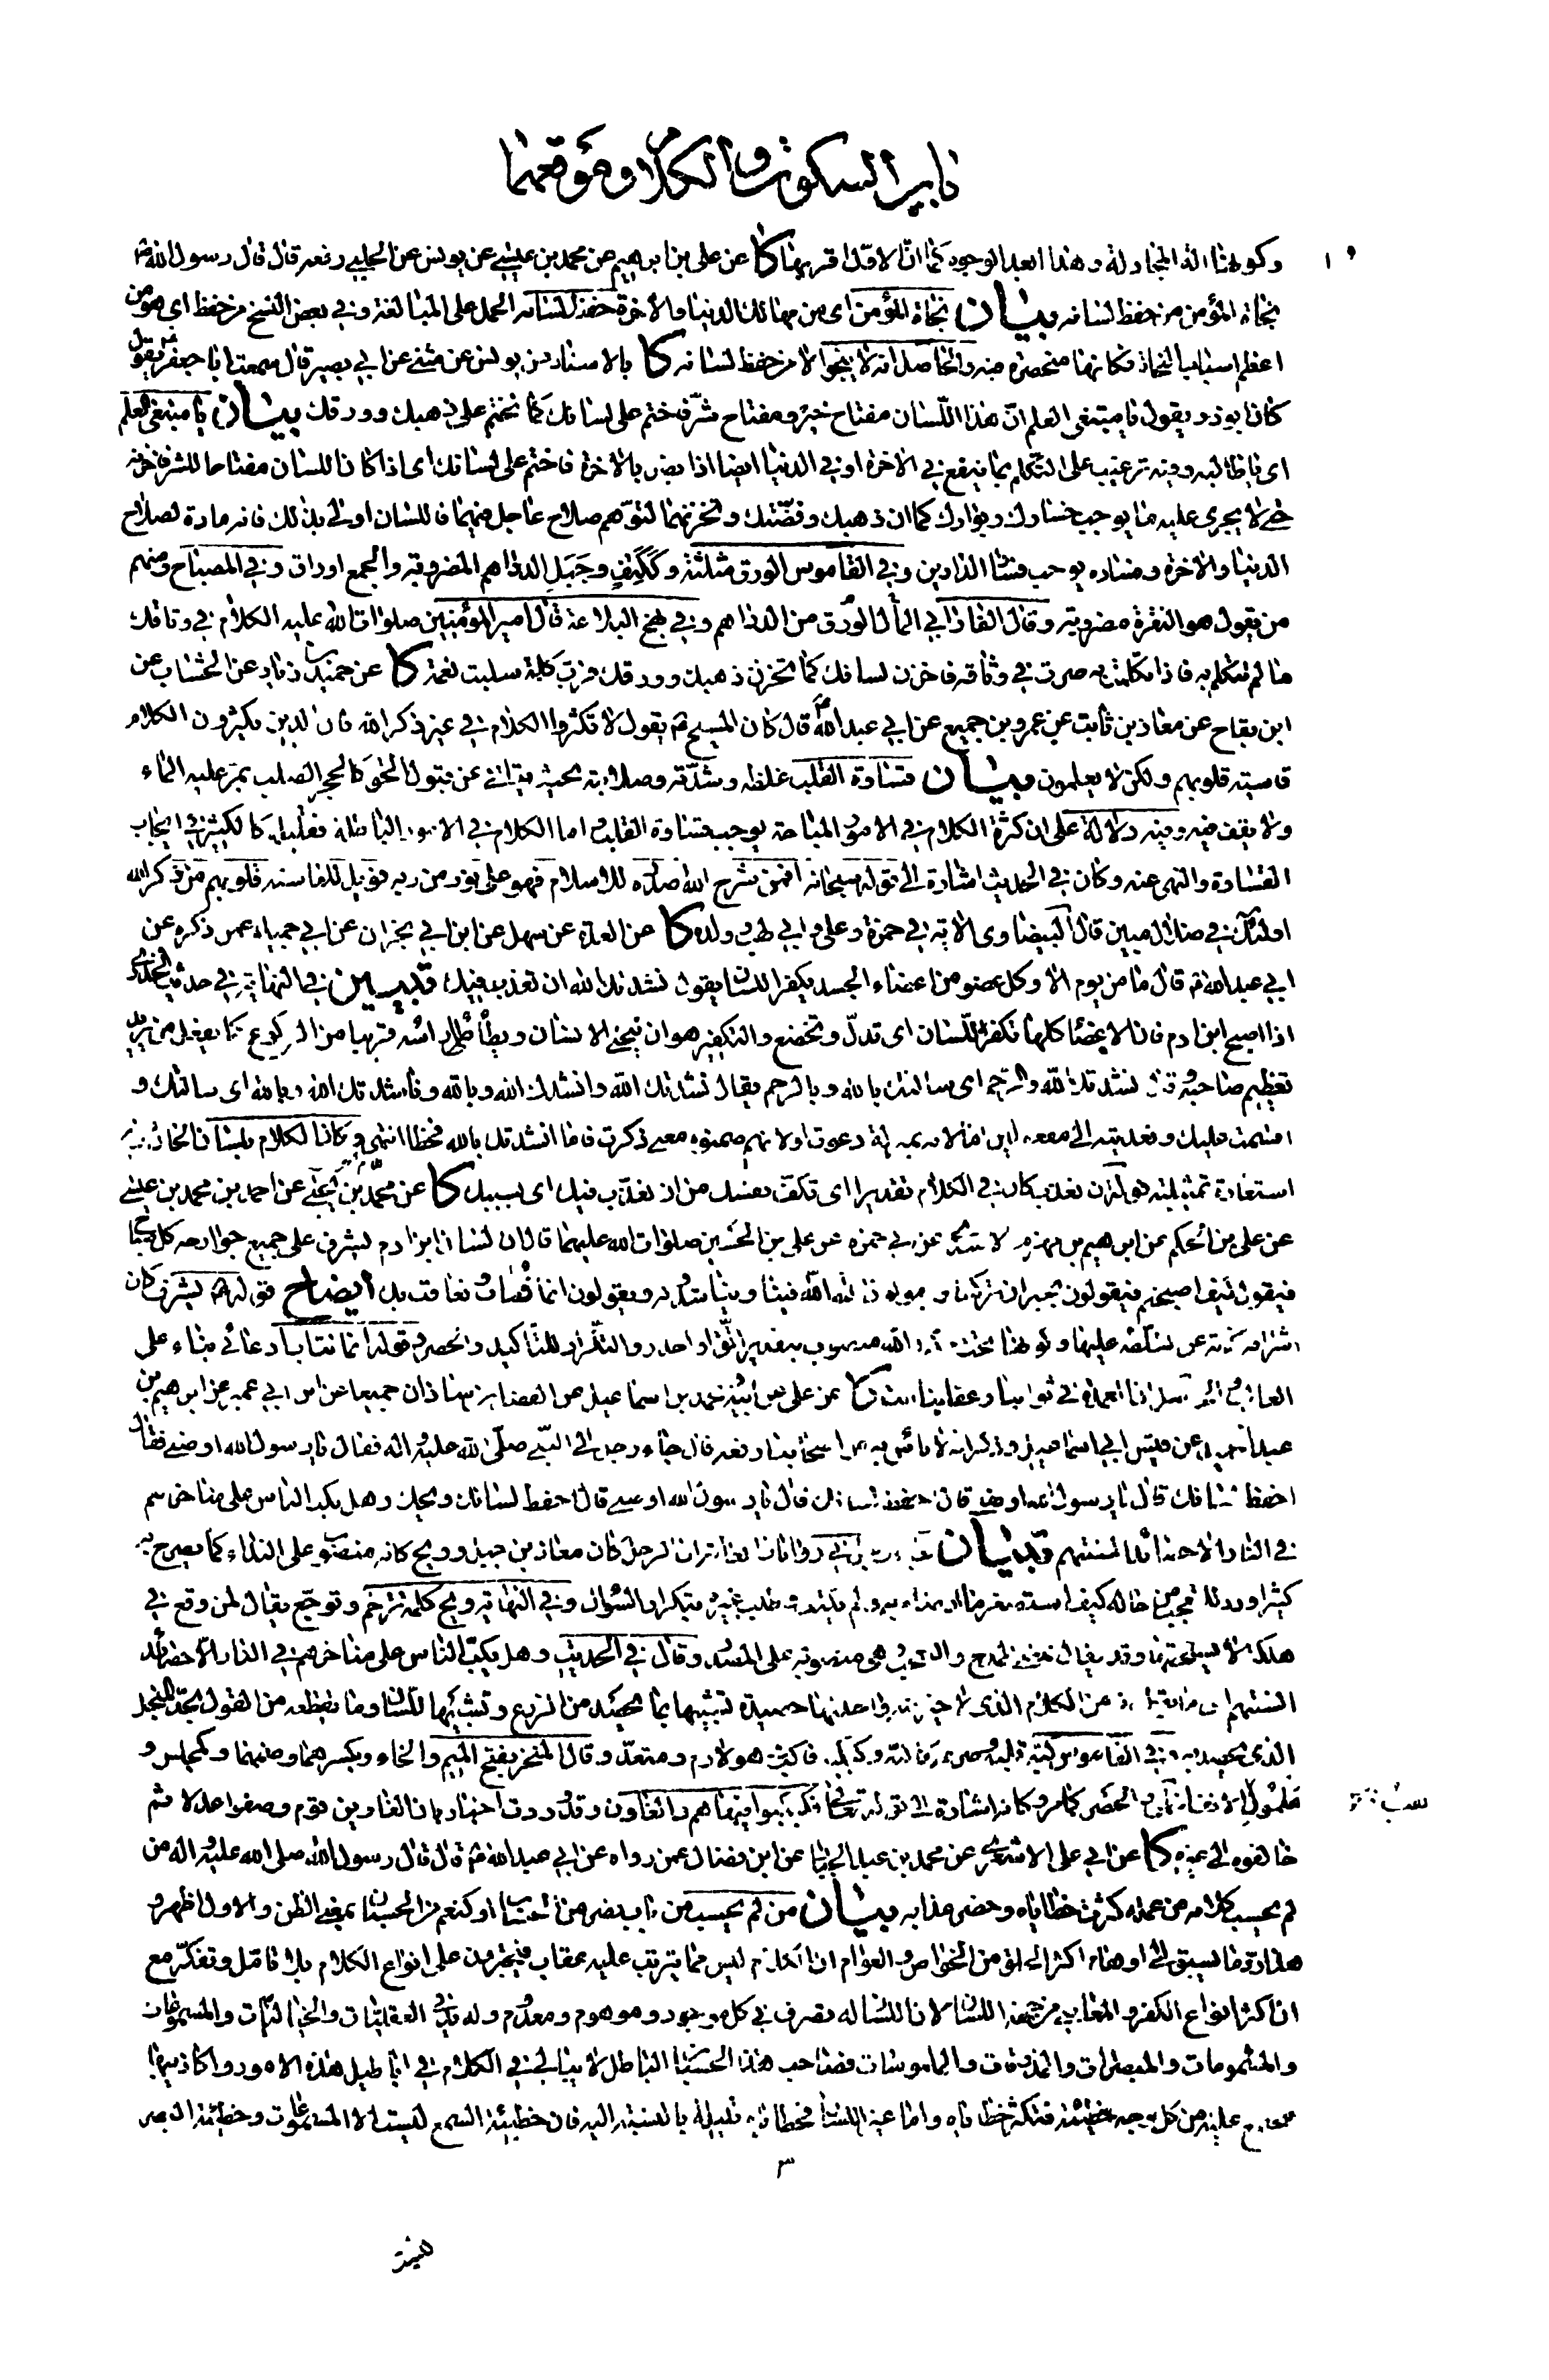 باب السكوت والكلام وموقعهما
وكونها الة المجادلة وهذا ابعد الوجوه كما ان الاول اقربها كا عن علي بن ابرهيم عن محمد بن عيسى عن يونس عن الحلبي رفعه قال قال رسول الله ص
نجاة المؤمن من حفظ لسانه بيان نجاة المؤمن اى من مهالك الدنيا والاخرة حفظ لسانه الحمل على المبالغة وفي بعض النسخ من حفظ اى هو من
اعظم اسباب النجاة فكانها منحصرة فيه والحاصل انه لا ينجو الا من حفظ لسانه كا بالاسناد عن يونس عن مثنى عن ابي بصير قال سمعت ابا جعفر ع يقول
كان ابو ذر يقول يا مبتغى العلم ان هذا اللسان مفتاح خير ومفتاح شر فاختم على لسانك كما تختم على ذهبك وورقك بيان يا مبتغى العلم
اى يا طالبه وفيه ترغيب على التكلم بما ينفع في الاخرة او في الدنيا ايضا اذا لم يضر بالاخرة فاختم على لسانك اى اذا كان اللسان مفتاحا للشر فاخزنه
حتى لا يجرى عليه ما يوجب خسارك وبوارك كما ان ذهبك وفضتك تخزنهما لتوهم صلاح عاجل فيهما فاللسان اولى بذلك فانه مادة لصلاح
الدنيا والاخرة وفساده يوجب فساد الدارين وفي القاموس الورق مثلثة وككتف وجبل الدراهم المضروبة والجمع اوراق وفي المصباح ومنهم
من يقول هو النقرة مضروبة وقال الفارابي المال الورق من الدراهم وفي نهج البلاغة قال امير المؤمنين صلوات الله عليه الكلام في وثاقك
ما لم تتكلم به فاذا تكلمت به صرت في وثاقه فاخزن لسانك كما تخزن ذهبك وورقك فرب كلمة سلبت نعمة كا عن حميد بن زياد عن الخشاب عن
ابن بقاح عن معاذ بن ثابت عن عمرو بن جميع عن ابي عبد الله ع قال كان المسيح ع يقول لا تكثروا الكلام في غير ذكر الله فان الذين يكثرون الكلام
قاسية قلوبهم ولكن لا يعلمون بيان قساوة القلب غلظه وشدته وصلابته بحيث يتابى عن قبول الحق كالحجر الصلب يمر عليه الماء
ولا يقف فيه وفيه دلالة على ان كثرة الكلام في الامور المباحة يوجب قساوة القلب واما الكلام في الامور الباطلة فقليله كالكثير في ايجاب
القساوة والنهى عنه وكان في الحديث اشارة الى قوله سبحانه افمن شرح الله صدره للاسلام فهو على نور من ربه فويل للقاسية قلوبهم من ذكر الله
اولئك في ضلال مبين قال البيضاوى الاية في حمزة وعلى وابي لهب وولده كا عن العدة عن سهل عن ابن ابي نجران عن ابي جميلة عمن ذكره عن
ابي عبد الله ع قال ما من يوم الا وكل عضو من اعضاء الجسد يكفر اللسان يقول نشدتك الله ان نعذب فيك تبيين في النهاية في حديث الخدرى
اذا اصبح ابن ادم فان الاعضا كلها تكفر للسان اى تذل وتخضع والتكفير هو ان ينحنى الانسان ويطأطئ راسه قريبا من الركوع كما يفعل من يريد
تعظيم صاحبه وقال نشدتك الله والرحم اى سالتك بالله وبالرحم يقال نشدتك الله وانشدك الله وبالله وناشدتك الله وبالله اى سالتك و
اقسمت عليك وتعديته الى مفعولين اما لانه بمنزلة دعوت اولانهم ضمنوه معنى ذكرت فاما انشدتك بالله فخطا انتهى وكان الكلام بلسان الحال وفيه
استعارة تمثيلية قوله ان نعذب كان في الكلام تقديرا اى تكف نفسك من ان نعذب فيك اى بسببك كا عن محمد بن يحيى عن احمد بن محمد بن عيسى
عن علي بن الحكم عن ابرهيم بن مهزم الاسدى عن ابي حمزة عن علي بن الحسين صلوات الله عليهما قال ان لسان ابن ادم يشرف على جميع جوارحه كل صباح
فيقول كيف اصبحتم فيقولون بخير ان تركتنا ويقولون الله الله فينا ويناشدونه ويقولون انما نثاب ونعاقب بك ايضاح قوله ع يشرف كان
اشرافه كناية عن تسلطه عليها وقولها بخير الله منصوب بتقدير اتق او احذر والتكرار للتاكيد والحصر في قوله انما نثاب ادعائي بناء على
الغالب عن علي عن ابيه ومحمد بن اسماعيل عن الفضل بن شاذان جميعا عن ابن ابي عمير عن ابرهيم بن
عبد الحميد عن قيس ابي اسماعيل وذكر انه لا باس به من اصحابنا رفعه قال جاء رجل الى النبي صلى الله عليه واله فقال يا رسول الله اوصنى فقال
احفظ لسانك قال يا رسول الله اوصنى قال احفظ لسانك قال يا رسول الله اوصنى قال احفظ لسانك ويحك وهل يكب الناس على مناخرهم
في النار الا حصائد السنتهم تبيان في روايات العامة ان الرجل كان معاذ بن جبل وويح كانه منصوب على النداء كما يصرح به
كثيرا وورد للتعجب من حاله كيف وفي النهاية ويح كلمة ترحم وتوجع يقال لمن وقع في
هلكة لا يستحقها وقد يقال بمعنى المدح والتعجب وهى منصوبة على المصدر وقال في الحديث وهل يكب الناس على مناخرهم في النار الا حصائد
السنتهم اى ما يقتطعونه من الكلام الذى لا خير فيه واحدتها حصيدة تشبيها بما يحصد من الزرع وتشبيها للسان وما يقتطعه من القول بحد المنجل
الذى يحصد به وفي القاموس كبه قلبه وصرعه كاكبه وكبكبه فاكب هو لازم ومتعد وقال المنخر بفتح الميم والخاء وبكسرهما وضمهما وكمجلس و
ملمول الانف الحصر كما مر وكانه اشارة الى قوله تعالى فكبكبوا فيها هم والغاون وقد وردت اخبار بان الغاوين قوم وصفوا عدلا ثم
خالفوه الى غيره كا عن ابي على الاشعرى عن محمد بن عبد الجبار عن ابن فضال عمن رواه عن ابي عبد الله ع قال قال رسول الله صلى الله عليه واله من
لم يحسب كلامه من عمله كثرت خطاياه وحضر عذابه بيان من لم يحسب من باب نصر من الحساب او كنعم من الحسبان بمعنى الظن والاول اظهر و
هذا رد ما يسبق الى اوهام اكثر الخلق من الخواص والعوام ان الكلام ليس مما يترتب عليه عقاب فيجترءون على انواع الكلام بلا تامل وتفكر مع
ان اكثر انواع الكفر والمعاصى من جهة اللسان لان اللسان له تصرف في كل موجود وموهوم ومعدوم وله يد في العقليات والخياليات والمسموعات
والمشمومات والمبصرات والمذوقات والملموسات فصاحب هذا الحسبان الباطل لا يبالى في الكلام في اباطيل هذه الامور واكاذيبها
فيجتمع عليه من كل وجه خطيئة فتكثر خطاياه واما غير اللسان فخطاياه قليلة بالنسبة اليه فان خطيئة السمع ليست الا المسموعات وخطيئة البصر
٣
ليست